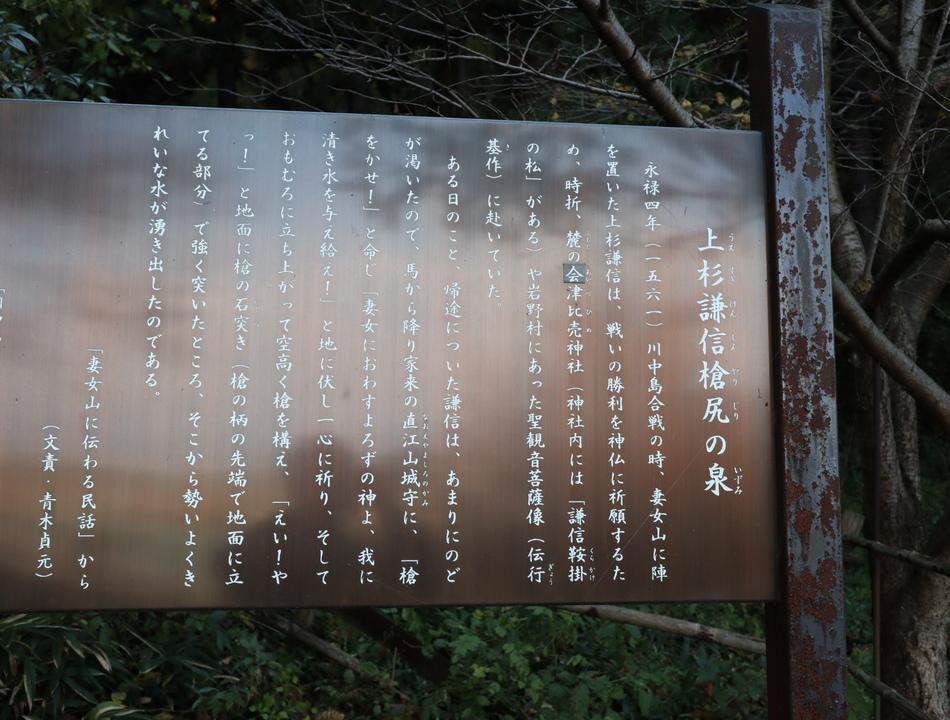 上杉謙信槍尻の泉
永禄四年（一五六一）川中島合戦の時、妻女山に陣
を置いた上杉謙信は、戦いの勝利を神仏に祈願するた
め、時折、麓の会津比売神社（神社内には「謙信鞍掛
の松」がある）や岩野村にあった聖観音菩薩像（伝行
基作）に赴いていた。
ある日のこと、帰途についた謙信は、あまりにのど
が渇いたので、馬から降り家来の直江山城守に、「槍
をかせ！」と命じ「妻女におわすよろずの神よ、我に
清き水を与え給え！」と地に伏し一心に祈り、そして
おもむろに立ち上がって空高く槍を構え、「えい！や
っ！」と地面に槍の石突き（槍の柄の先端で地面に立
てる部分）で強く突いたところ、そこから勢いよくき
れいな水が湧き出したのである。
「妻女山に伝わる民話」から
（文責・青木貞元）